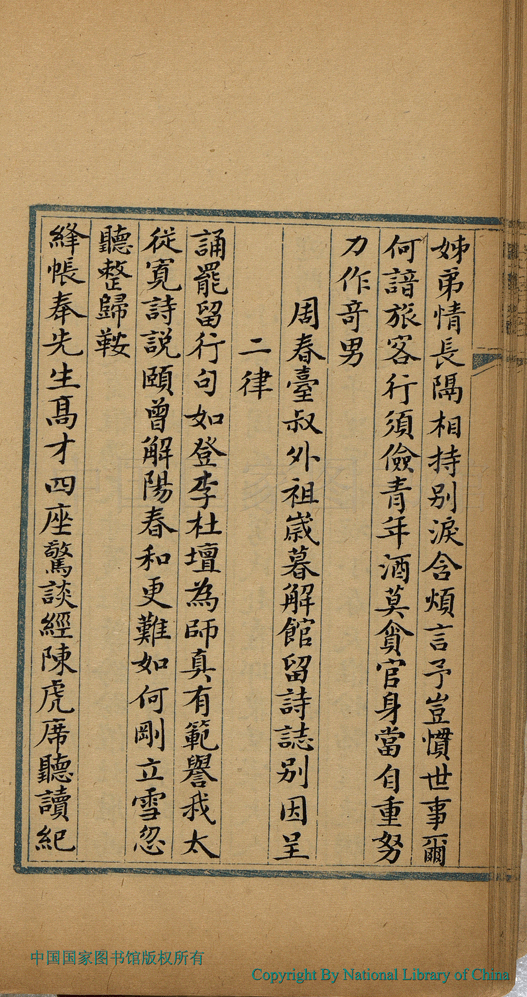 姊弟情長隔相持别淚含煩言予豈慣世事爾
何諳旅客行須儉青年酒莫貪官身當自重努
力作竒男
周春臺叔外祖嵗暮解館留詩誌别因呈
二律
誦罷留行句如登李杜壇為師真有範譽我太
從寛詩説頤曾解陽春和更難如何剛立雪忽
聽整歸鞍
絳帳奉先生髙才四座驚談經陳虎席聽讀紀
中国国家图书馆版权所有
Copyright By National Library of China